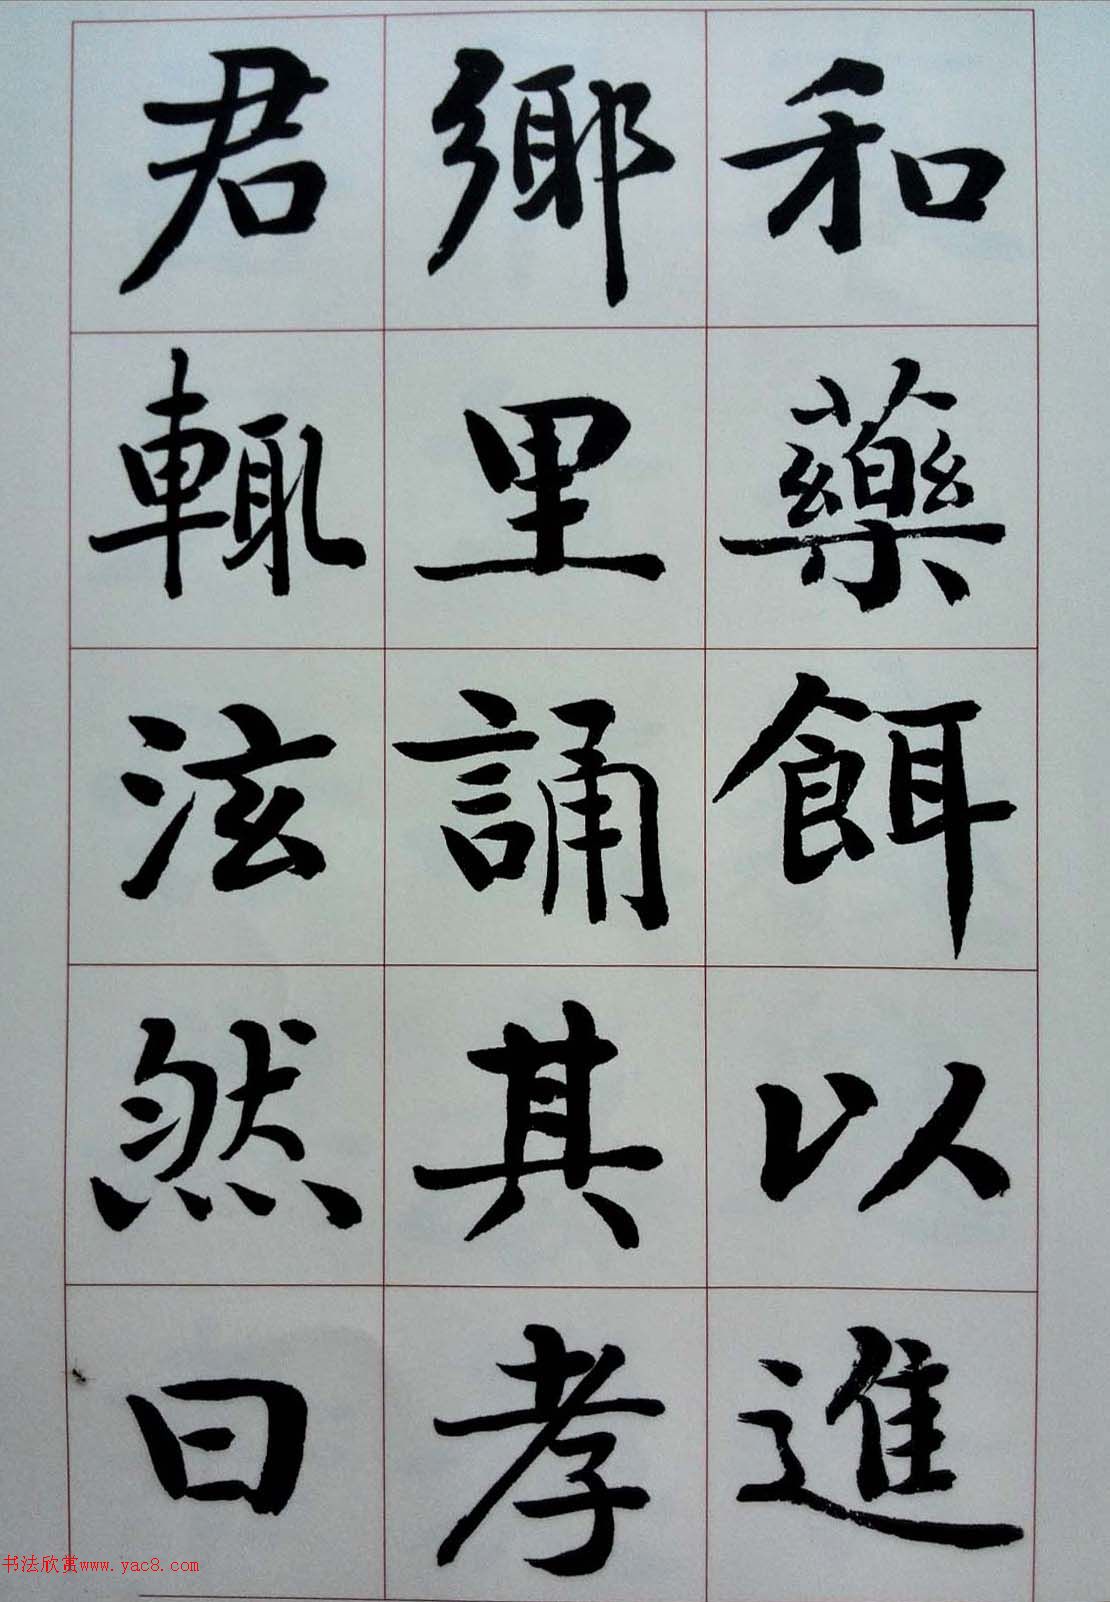 和藥餌以進
鄉里誦其孝
君輒泫然曰
书法欣赏www.yac8.com